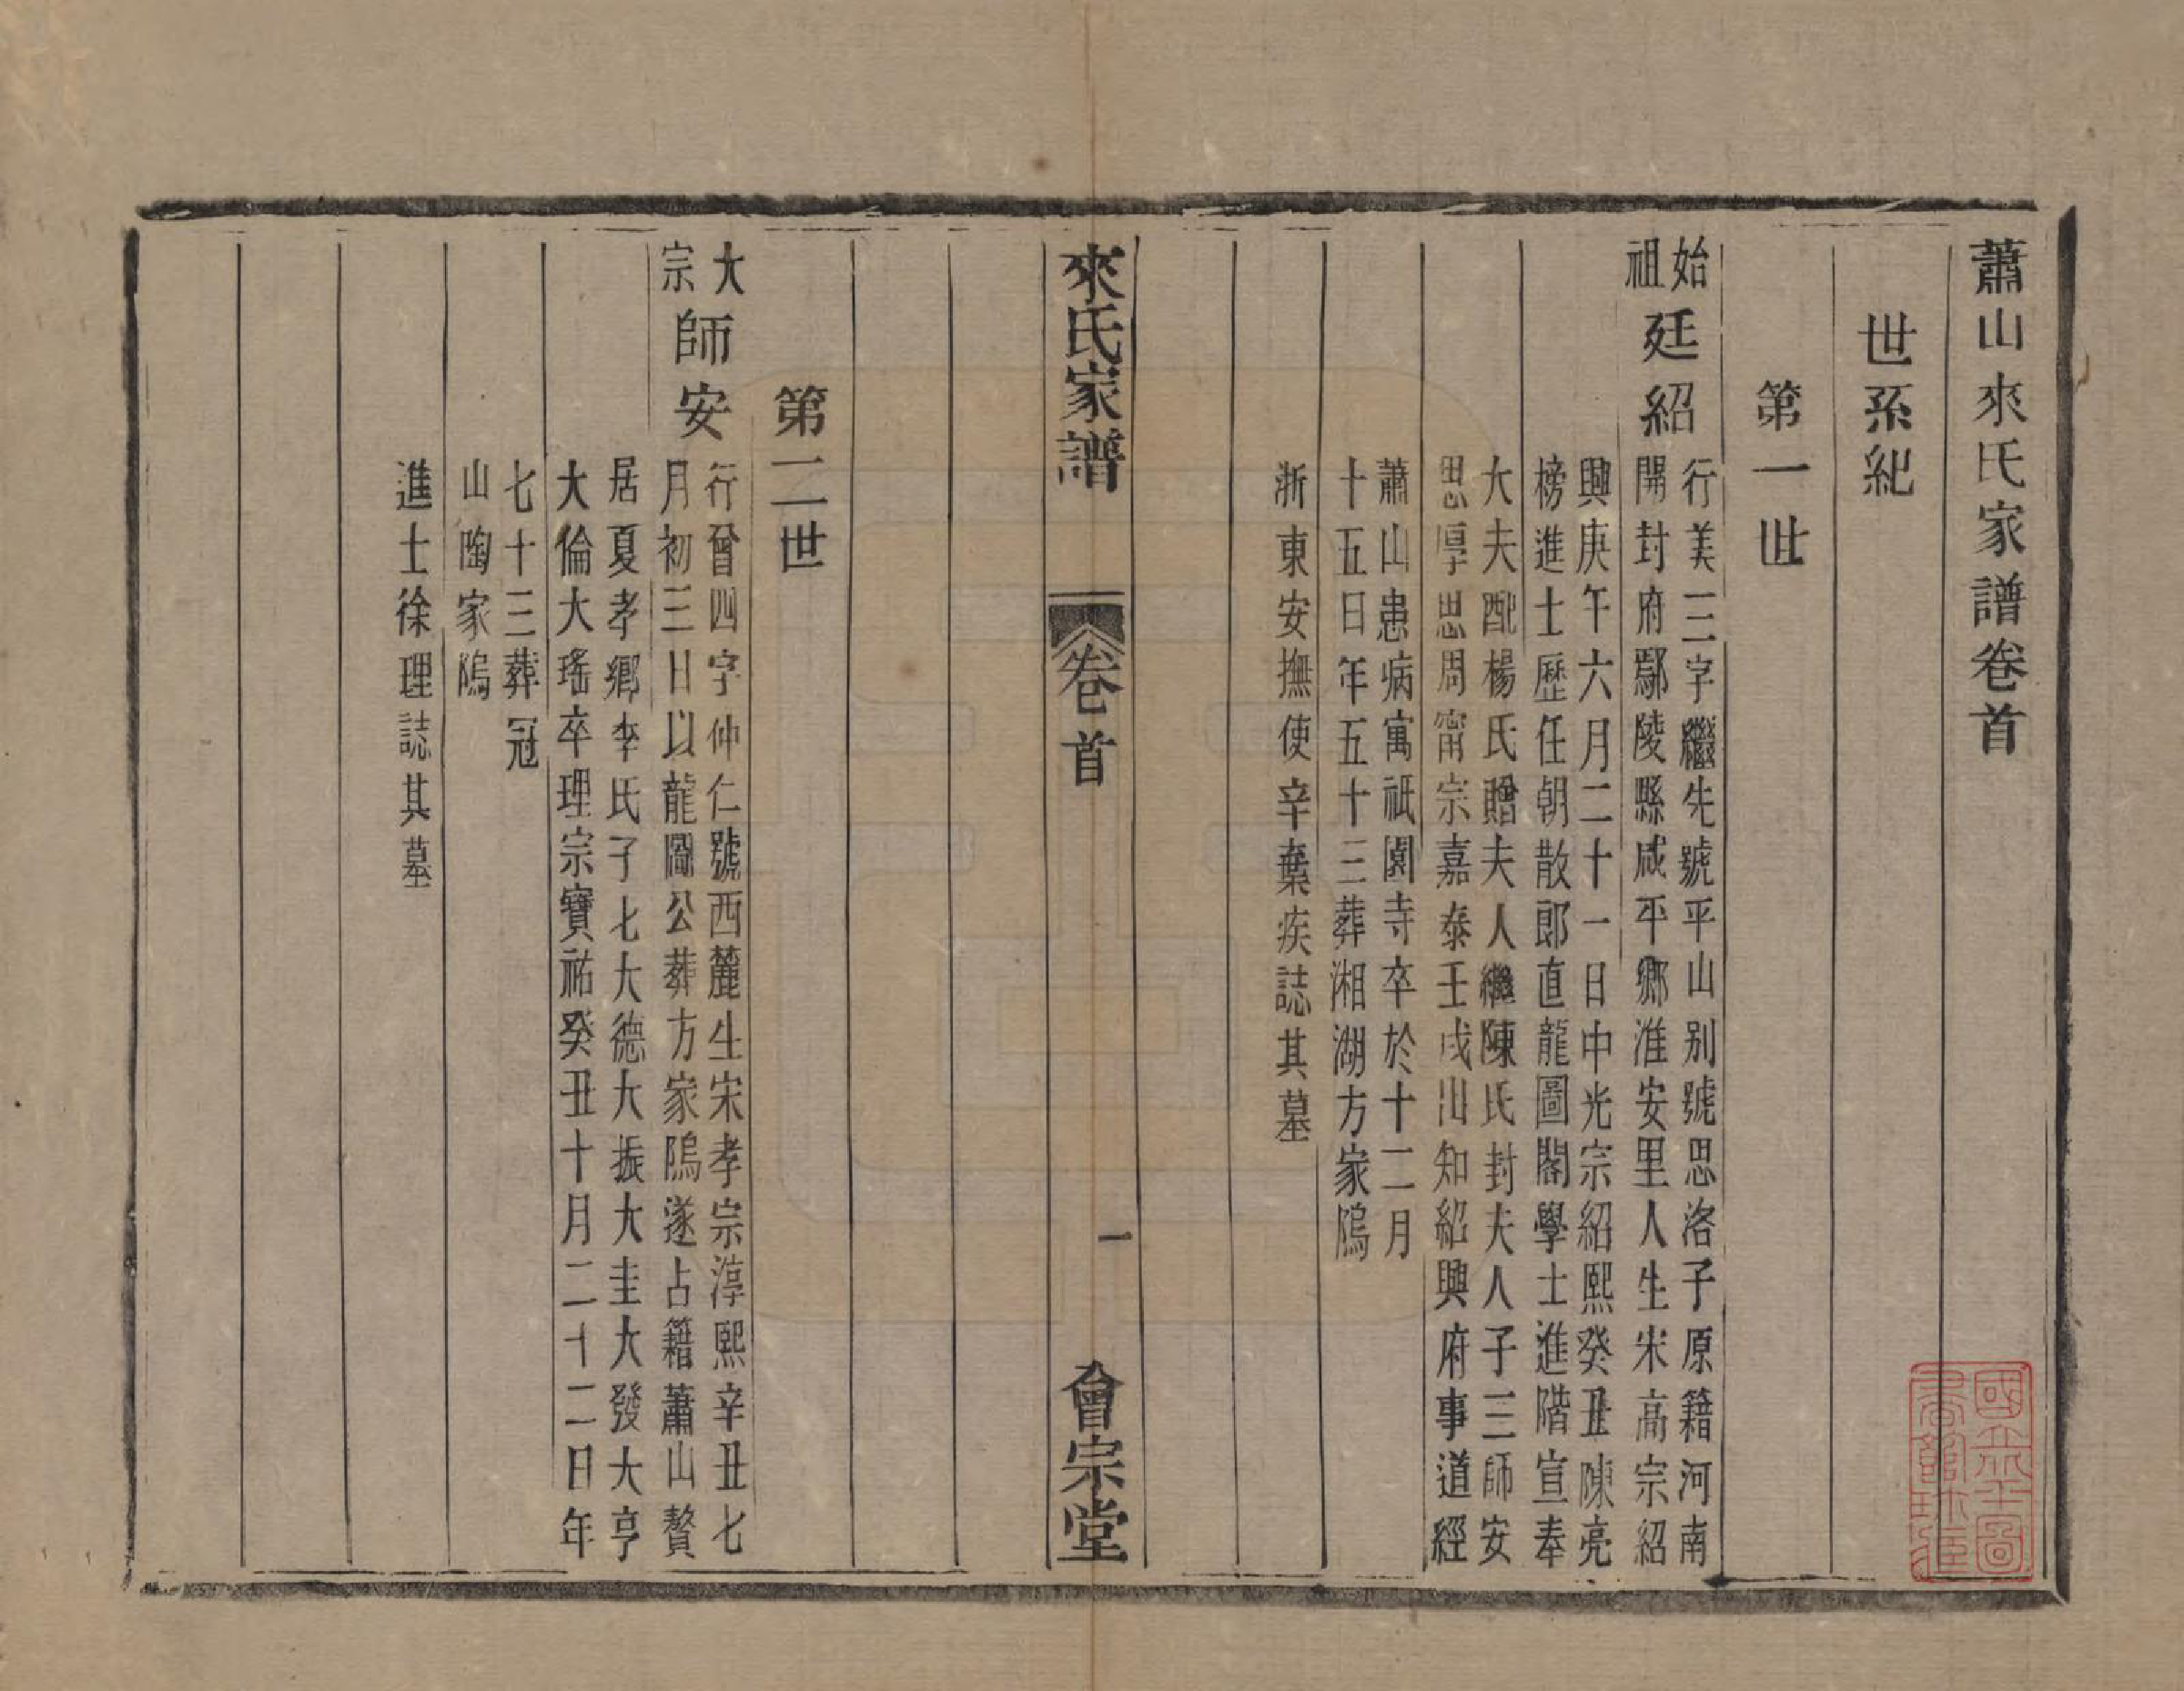 蕭山來氏家譜卷首
世系紀
第一世
始祖
廷紹
行美三字繼先號平山別號思洛子原籍河南
開封府鄢陵縣咸平鄉淮安里人生宋高宗紹
興庚午六月二十一日中光宗紹熙癸丑陳亮
榜進士歷任朝散郎直龍圖閣學士進階宣奉
大夫配楊氏贈夫人繼陳氏封夫人子三師安
思厚思周甯宗嘉泰壬戌出知紹興府事道經
蕭山患病寓祇園寺卒於十二月
十五日年五十三葬湘湖方家隖
浙東安撫使辛棄疾誌其墓
來氏家譜
卷首
一
會宗堂
第二世
大宗
師安
行曾四字仲仁號西麓生宋孝宗淳熙辛丑七
月初三日以龍圖公葬方家隖遂占籍蕭山贅
居夏孝鄉李氏子七大德大振大圭大發大亨
大倫大瑤卒理宗寶祐癸丑十月二十二日年
七十三葬冠
山陶家隖
進士徐理誌其墓
國立北平圖
書館珍藏